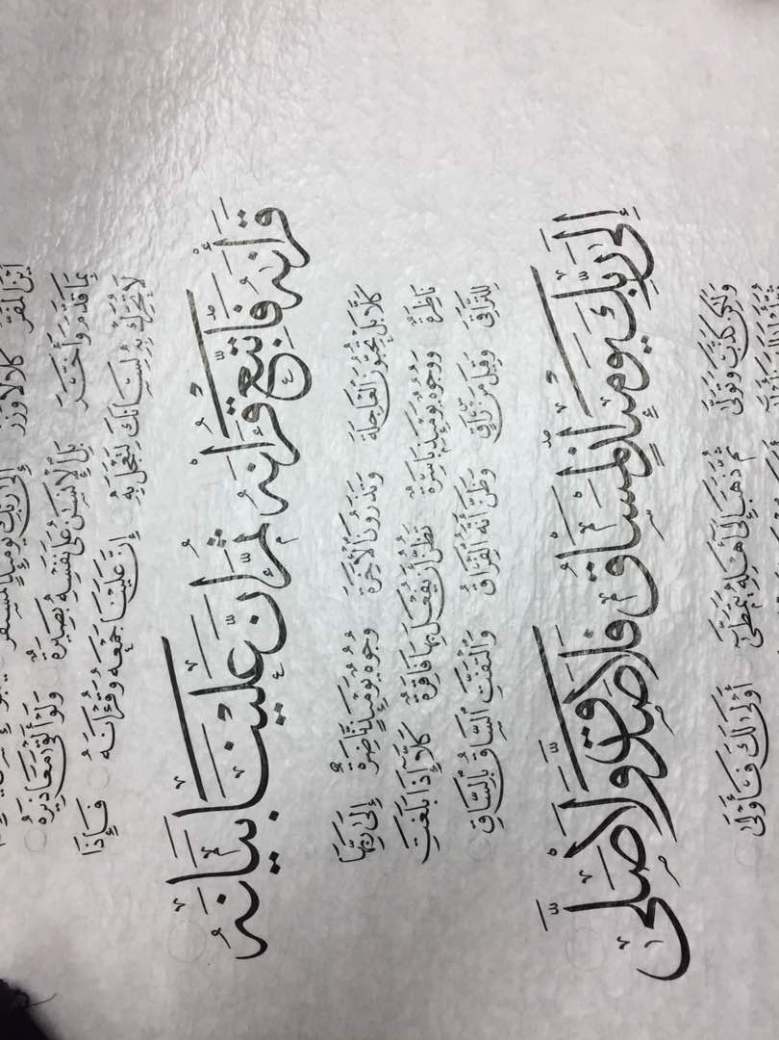 أَيْنَ الْمَفَرُّ كَلَّا لَا وَزَرَ إِلَىٰ رَبِّكَ يَوْمَئِذٍ الْمُسْتَقَرُّ
بِمَا قَدَّمَ وَأَخَّرَ بَلِ الْإِنْسَٰنُ عَلَىٰ نَفْسِهِ بَصِيرَةٌ وَلَوْ أَلْقَىٰ مَعَاذِيرَهُ
لَا تُحَرِّكْ بِهِ لِسَانَكَ لِتَعْجَلَ بِهِ إِنَّ عَلَيْنَا جَمْعَهُ وَقُرْءَانَهُ فَإِذَا
قَرَأْنَٰهُ فَاتَّبِعْ قُرْءَانَهُ ثُمَّ إِنَّ عَلَيْنَا بَيَانَهُ
كَلَّا بَلْ تُحِبُّونَ الْعَاجِلَةَ وَتَذَرُونَ الْآخِرَةَ وُجُوهٌ يَوْمَئِذٍ نَاضِرَةٌ إِلَىٰ رَبِّهَا
نَاظِرَةٌ وَوُجُوهٌ يَوْمَئِذٍ بَاسِرَةٌ تَظُنُّ أَنْ يُفْعَلَ بِهَا فَاقِرَةٌ كَلَّا إِذَا بَلَغَتِ
التَّرَاقِيَ وَقِيلَ مَنْ رَاقٍ وَظَنَّ أَنَّهُ الْفِرَاقُ وَالْتَفَّتِ السَّاقُ بِالسَّاقِ
إِلَىٰ رَبِّكَ يَوْمَئِذٍ الْمَسَاقُ فَلَا صَدَّقَ وَلَا صَلَّىٰ
وَلَٰكِنْ كَذَّبَ وَتَوَلَّىٰ ثُمَّ ذَهَبَ إِلَىٰ أَهْلِهِ يَتَمَطَّىٰ أَوْلَىٰ لَكَ فَأَوْلَىٰ